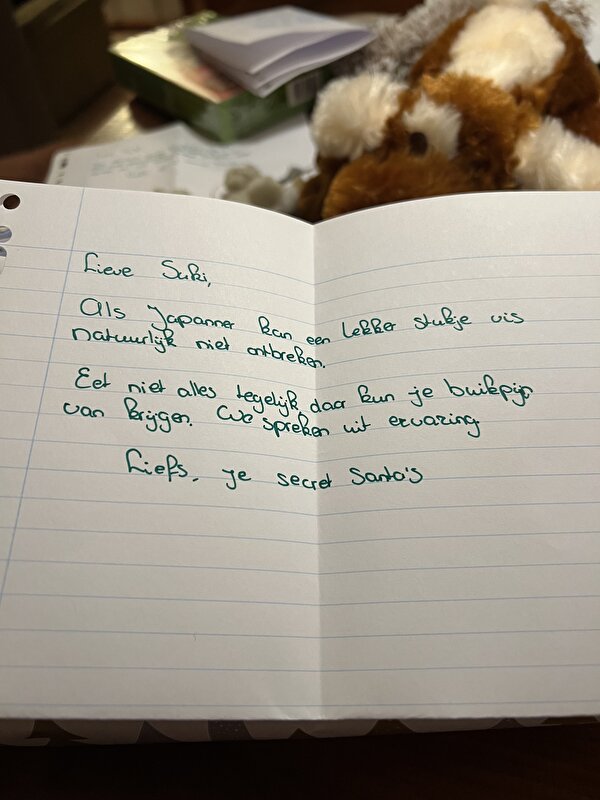 Lieve Suki,
Als Japanner kan een lekker stukje vis
natuurlijk niet ontbreken.
Eet niet alles tegelijk daar kun je buikpijn
van krijgen. We spreken uit ervaring
Liefs, je secret Santa's